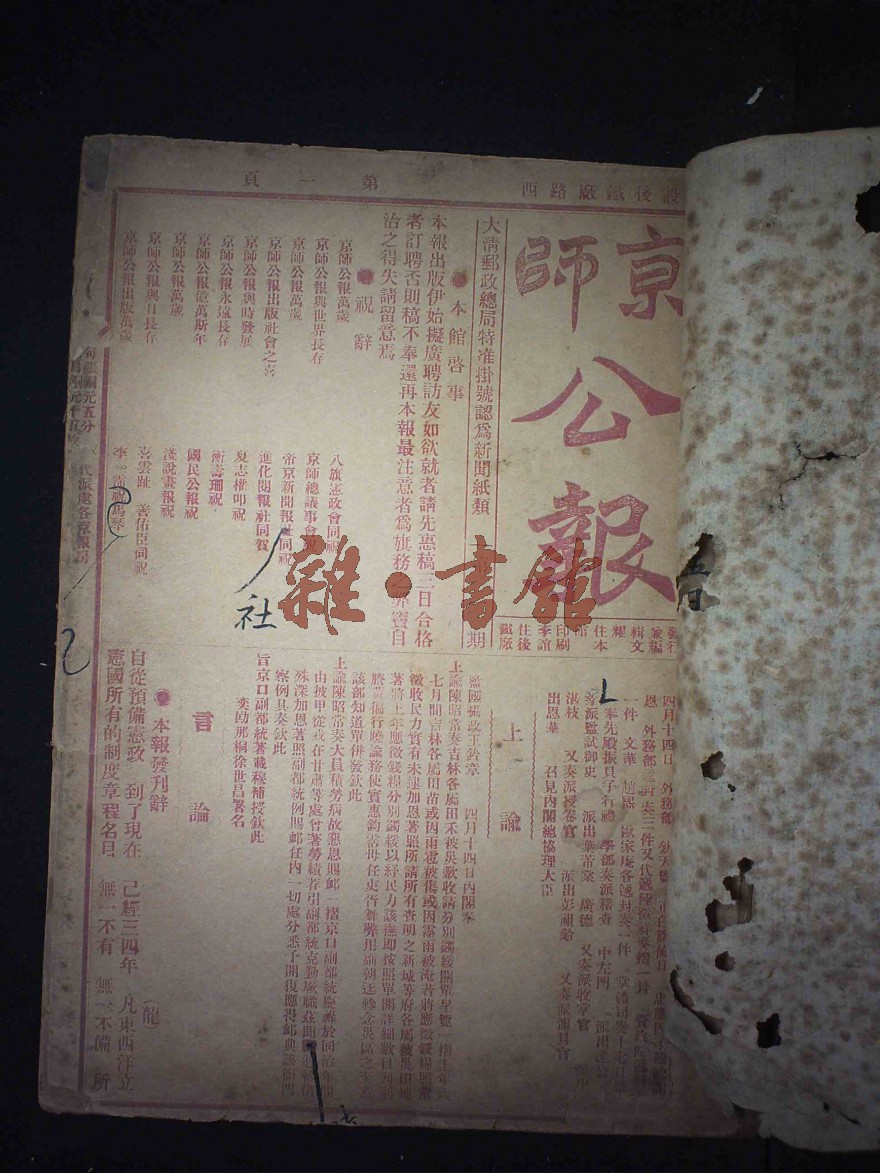 設後鐵廠路西
第一頁
京師
公
報
大清郵政總局特准掛號認爲新聞紙類
期
●本館啓事
本報出版伊始擬廣聘訪友如欲就者請先惠稿三日合格
者訂聘否則稿不奉還再本報最注意者爲旗務之弊竇自
治之得失請留意焉
●祝辭
京師公報萬歲
京師公報與世界長存
京師公報萬歲
京師公報出版社會之喜
京師公報與時發展
京師公報永遠長存
京師公報億萬斯年
京師公報萬歲
京師公報與日長存
京師公報出版萬歲
八旗憲政會同祝
京師總議事會祝
帝京新聞報社同祝
進化閱報社同賀
夏志權叩祝
衡壽珊祝
國民公報祝
淺說畫報祝
喜雲趾 善佑臣同祝
雜·書館
社
代派處各報房
四月十四日 外務部
恩 外務部
一件 文華 趙熙
奉先殿振貝子行禮 學部奏派稽查 中左門 派出達公
等派監試御史 派出葉芾棠 廣德 又奏派收掌官
湛枝 又奏派授卷官 派出彭祖齡 又奏派彌封官
出恩華 召見內閣總協理大臣
上諭
監國攝政王鈐章 四月十四日內閣奉
上諭陳昭常奏吉林各屬田禾被災歉收請分別蠲緩開單呈覽一摺上年六
七月間吉林各屬田苗或因雨雹被傷或因霪雨被淹若將應徵錢糧照常
徵收民力實有未逮加恩著照所請所有查明之新城等府各屬被災田地
著將上年應徵錢糧分別蠲緩以紓民力該撫即按照單開詳細數目刊刻
謄黃徧行曉諭務使實惠均霑毋任吏胥舞弊用副朝廷軫念災區之至意
該部知道單併發欽此
上諭陳昭常奏大員積勞病故懇恩賜卹一摺京口副都統
由披甲從戎在甘肅等處曾著勞績荐引副都統克勤厥職茲聞
殊深加恩著照副都統例賜卹任內一切處分悉予開復應得卹典該衙門
察例具奏欽此
旨京口副都統著載穆補授欽此
奕劻那桐徐世昌署名
言論
●本報發刊辭
（龍）
自從預備憲政 到了現在 已經三四年 凡東西洋立
憲國所有的制度章程名目 無一不有 無一不備 所